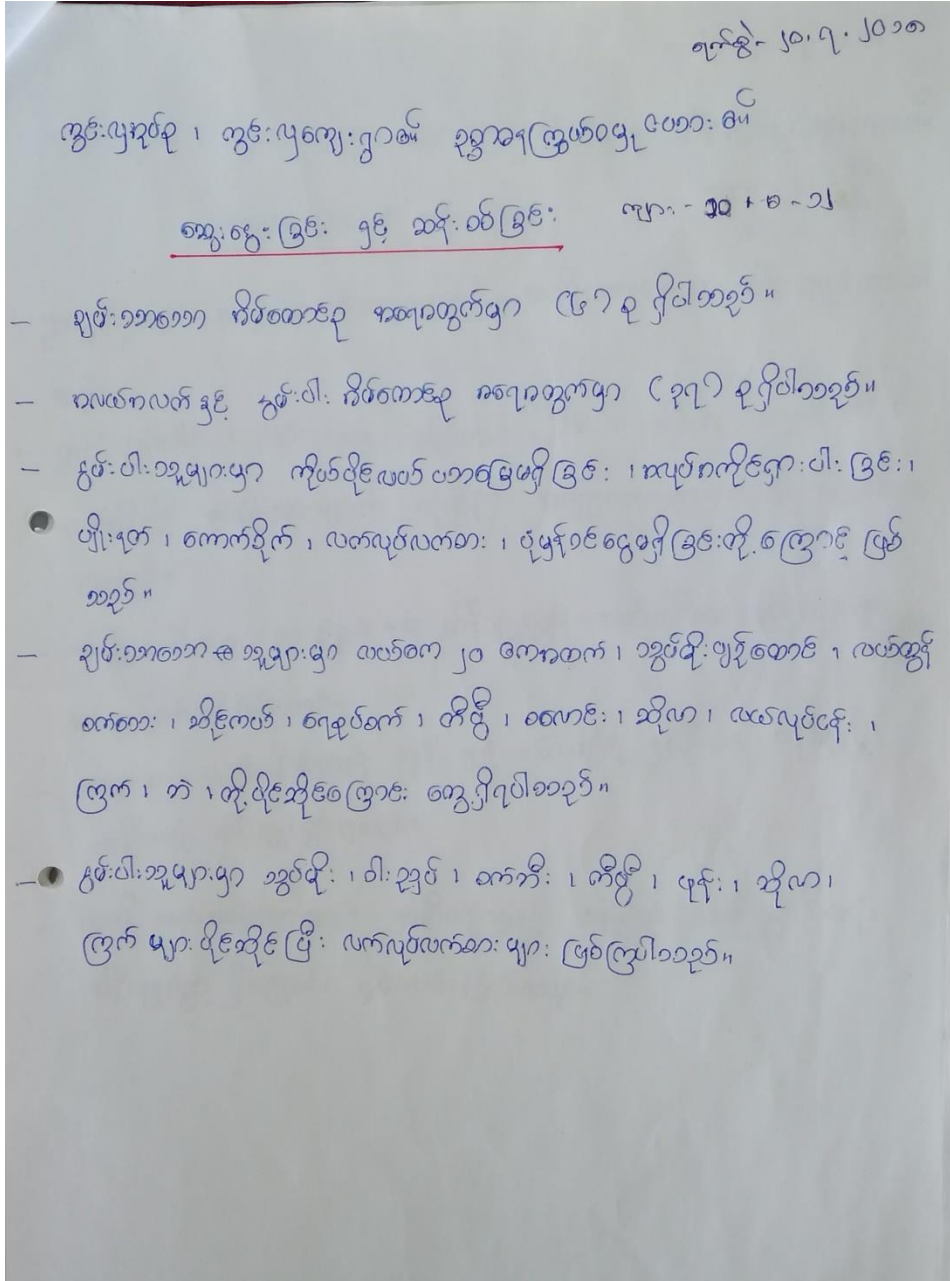 ရက်စွဲ- ၂၀.၇.၂၀၁၈
ကွင်းလှအုပ်စု ၊ ကွင်းလှကျေးရွာ၏ ဥစ္စာဓနကြွယ်ဝမှု ဇယား ၏
ဆွေးနွေးခြင်း နှင့် ဆန်းစစ်ခြင်း
ကျား -
- ချမ်းသာသော အိမ်ထောင်စု အရေအတွက်မှာ (၆၁) စု ရှိပါသည်။
- အလယ်အလတ် နှင့် နွမ်းပါး အိမ်ထောင်စု အရေအတွက်မှာ ( ၃၃၁) စု ရှိပါသည်။
- နွမ်းပါးသူများမှာ ကိုယ်ပိုင်လယ်ယာမြေမရှိခြင်း ၊ အလုပ်အကိုင်ရှားပါးခြင်း ၊
ပျိုးနုတ် ၊ ကောက်စိုက် ၊ လက်လုပ်လက်စား ၊ ပုံမှန်ဝင်ငွေမရှိခြင်းတို့ ကြောင့် ဖြစ်
သည်။
- ချမ်းသာသော သူများမှာ လယ်ဧက ၂၀ ဧကအထက် ၊ သွပ်မိုးပျဉ်ထောင် ၊ လယ်ထွန်
စက်လေး ၊ ဆိုင်ကယ် ၊ ရေစုပ်စက် ၊ တီဗွီ ၊ စလောင်း ၊ ဆိုလာ ၊ လယ်လုပ်ငန်း ၊
ကြက် ၊ ဘဲ ၊ တို့ ပိုင်ဆိုင်ကြောင်း တွေ့ရှိရပါသည်။
- နွမ်းပါးသူများမှာ သွပ်မိုး ၊ ဝါးညှပ် ၊ စက်ဘီး ၊ တီဗွီ ၊ ဖုန်း ၊ ဆိုလာ ၊
ကြက် များ ပိုင်ဆိုင်ပြီး လက်လုပ်လက်စား များ ဖြစ်ကြပါသည်။